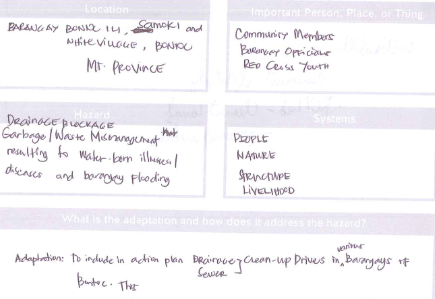 Location
BARANGAY BONTOC ILI, Samoki and
White Village, BONTOC
MT. PROVINCE
Important Person, Place, or Thing
Community Members
Barangay Officials
RED Cross Youth
Hazard
DRAINAGE BLOCKAGE
Garbage/Waste Mismanagement that
resulting to water-born illnesses/
diseases and barangay flooding
Systems
PEOPLE
NATURE
STRUCTURE
LIVELIHOOD
What is the adaptation and how does it address the hazard?
Adaptation: To include in action plan Drainage Clean-up Drives in various Barangays of
Sewer
Bontoc. This